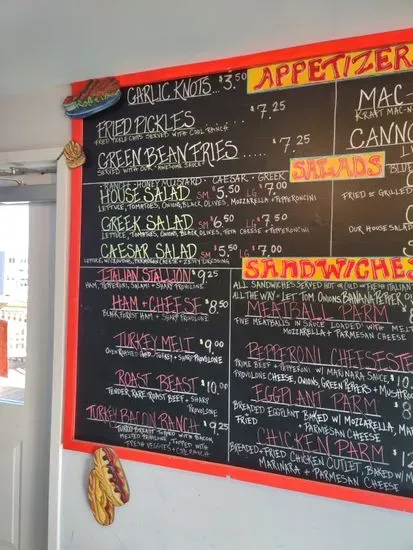 GARLIC KNOTS... $3.50
APPETIZER
FRIED PICKLES . . . $7.25
FRIED PICKLE CHIPS SERVED WITH COOL RANCH
GREEN BEAN FRIES . . . $7.25
SERVED WITH OUR AWESOME SAUCE
MAC-
KRAFT MAC-N
CANNO
BLUE
SALADS
RANCH · HONEY MUSTARD · CAESAR · GREEK
HOUSE SALAD SM $5.50 LG $7.00
LETTUCE, TOMATOES, ONIONS, BLACK OLIVES, MOZZARELLA + PEPPERONCINI
GREEK SALAD SM 6.50 LG $7.50
LETTUCE, TOMATOES, ONIONS, BLACK OLIVES, FETA CHEESE + PEPPERONCINI
CAESAR SALAD SM $5.50 LG $7.00
LETTUCE, W/CROUTONS, PARMESAN CHEESE + ZESTY DRESSING
FRIED or GRILLED
OUR HOUSE SALAD
SANDWICHES
ALL SANDWICHES SERVED HOT or COLD on FRESH ITALIAN
ALL THE WAY = LET TOM ONIONS, BANANA PEPPER
ITALIAN STALLION $9.25
HAM, PEPPERONI, SALAMI + SHARP PROVOLONE
HAM + CHEESE $8.50
BLACK FOREST HAM + SHARP PROVOLONE
TURKEY MELT $9.00
OVEN ROASTED TURKEY + SHARP PROVOLONE
ROAST BEAST $10.00
TENDER, RARE ROAST BEEF + SHARP PROVOLONE
TURKEY BACON RANCH $9.25
TURKEY BREAST TOPPED WITH BACON,
MELTED PROVOLONE, TOPPED WITH
FRESH VEGGIES + COOL RANCH
MEATBALL PARM
FIVE MEATBALLS IN SAUCE LOADED WITH MEL
MOZZARELLA + PARMESAN CHEESE
PEPPERONI CHEESESTE
PRIME BEEF + PEPPERONI W/ MARINARA SAUCE, $10
PROVOLONE CHEESE, ONIONS, GREEN PEPPERS + MUSHROO
EGGPLANT PARM
BREADED EGGPLANT BAKED W/ MOZZARELLA, MAR
FRIED + PARMESAN CHEESE
CHICKEN PARM
BREADED + FRIED CHICKEN CUTLET, BAKED W/ M
MARINARA + PARMESAN CHEESE